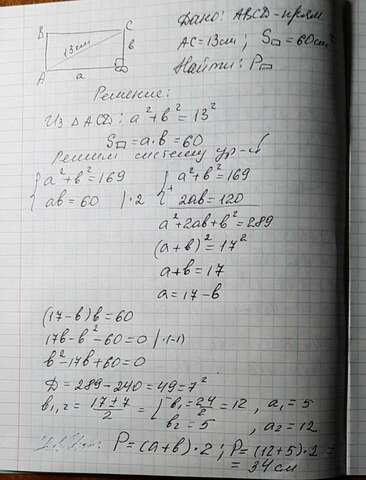 B C
13см
в
A a D
Дано: ABCD - прям.
AC = 13 см; S▭ = 60 см²
Найти: P▭
Решение:
Из ΔACD: a² + b² = 13²
S▭ = a·b = 60
Решим систему ур-й
{ a² + b² = 169
ab = 60 |·2
{ a² + b² = 169
+ 2ab = 120
a² + 2ab + b² = 289
(a + b)² = 17²
a + b = 17
a = 17 - b
(17 - b) b = 60
17b - b² - 60 = 0 |·(-1)
b² - 17b + 60 = 0
D = 289 - 240 = 49 = 7²
b₁,₂ = (17 ± 7)/2 = [ b₁ = 24/2 = 12, a₁ = 5
b₂ = 5, a₂ = 12
P = (a + b)·2; P = (12 + 5)·2 =
= 34 см